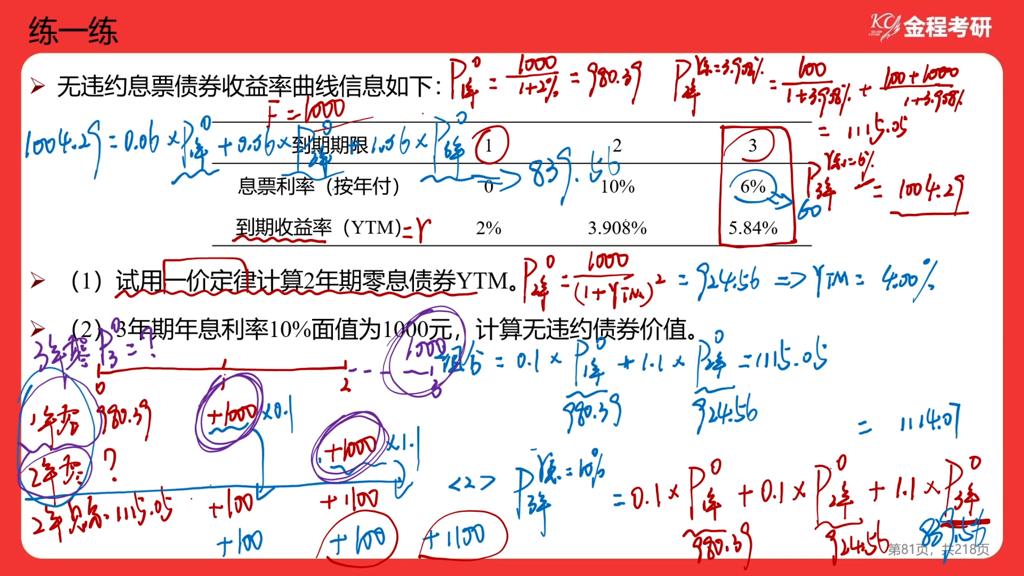 练一练
KC 金程考研
无违约息票债券收益率曲线信息如下：
P1年^0 = 1000/(1+2%) = 980.39
P2年^息=3.908% = 100/(1+3.908%) + (100+1000)/(1+3.908%
= 1115.05
F=1000
1004.29 = 0.06 × P1年^0 + 0.06 × P2年^0 + 1.06 × P3年^0
=> 839.56
到期期限 1 2 3
息票利率（按年付） 0 10% 6%
60
P3年^息=6% = 1004.29
到期收益率（YTM） =r 2% 3.908% 5.84%
（1）试用一价定律计算2年期零息债券YTM。
P2年^0 = 1000/(1+YTM)^2 = 924.56 => YTM = 4.00%
（2）3年期年息利率10%面值为1000元，计算无违约债券价值。
3年零 P3^0 = ?
1000
= 0.1 × P1年^0 + 1.1 × P2年^0 = 1115.05
980.39 924.56
0 1 2 3
1年零 980.39 +1000 ×0.1
= 1114.07
2年零 ? +1000 ×1.1
<2> P3年^息=10% = 0.1 × P1年^0 + 0.1 × P2年^0 + 1.1 × P3年^0
980.39 924.56 839.56
2年息 1115.05 +100 +1100
+100 +100 +1100
第81页，共218页